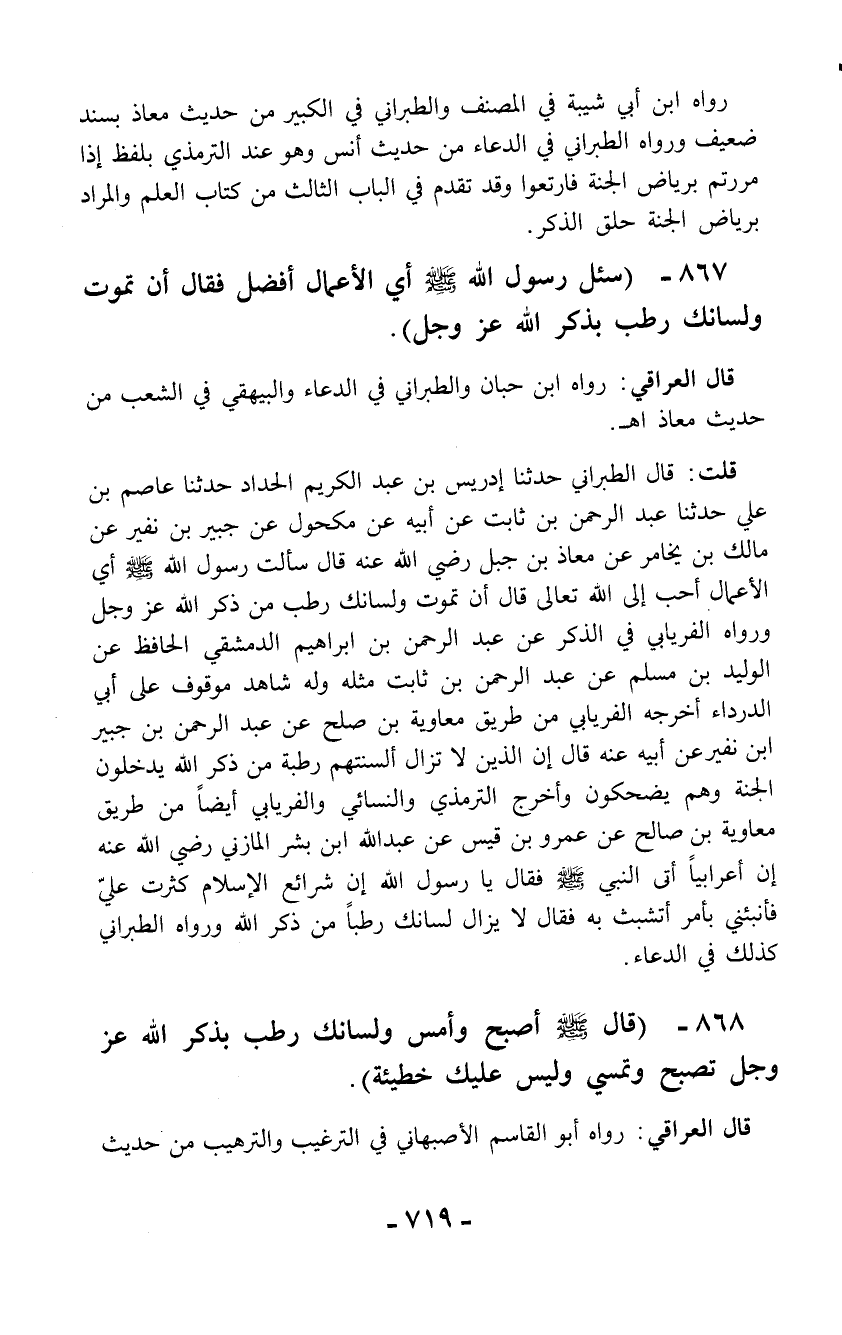 رواه ابن أبي شيبة في المصنف والطبراني في الكبير من حديث معاذ بسند
ضعيف ورواه الطبراني في الدعاء من حديث أنس وهو عند الترمذي بلفظ إذا
مررتم برياض الجنة فارتعوا وقد تقدم في الباب الثالث من كتاب العلم والمراد
برياض الجنة حلق الذكر.
٨٦٧ - (سئل رسول الله ﷺ أي الأعمال أفضل فقال أن تموت
ولسانك رطب بذكر الله عز وجل).
قال العراقي: رواه ابن حبان والطبراني في الدعاء والبيهقي في الشعب من
حديث معاذ اهـ.
قلت: قال الطبراني حدثنا إدريس بن عبد الكريم الحداد حدثنا عاصم بن
علي حدثنا عبد الرحمن بن ثابت عن أبيه عن مكحول عن جبير بن نفير عن
مالك بن يخامر عن معاذ بن جبل رضي الله عنه قال سألت رسول الله ﷺ أي
الأعمال أحب إلى الله تعالى قال أن تموت ولسانك رطب من ذكر الله عز وجل
ورواه الفريابي في الذكر عن عبد الرحمن بن ابراهيم الدمشقي الحافظ عن
الوليد بن مسلم عن عبد الرحمن بن ثابت مثله وله شاهد موقوف على أبي
الدرداء أخرجه الفريابي من طريق معاوية بن صلح عن عبد الرحمن بن جبير
ابن نفير عن أبيه عنه قال إن الذين لا تزال ألسنتهم رطبة من ذكر الله يدخلون
الجنة وهم يضحكون وأخرج الترمذي والنسائي والفريابي أيضاً من طريق
معاوية بن صالح عن عمرو بن قيس عن عبدالله ابن بشر المازني رضي الله عنه
إن أعرابياً أتى النبي ﷺ فقال يا رسول الله إن شرائع الإسلام كثرت عليّ
فأنبئني بأمر أتشبث به فقال لا يزال لسانك رطباً من ذكر الله ورواه الطبراني
كذلك في الدعاء.
٨٦٨ - (قال ﷺ أصبح وأمس ولسانك رطب بذكر الله عز
وجل تصبح وتمسي وليس عليك خطيئة).
قال العراقي: رواه أبو القاسم الأصبهاني في الترغيب والترهيب من حديث
- ٧١٩ -